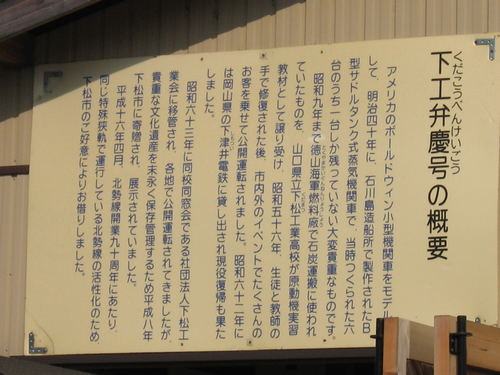 くだこうべんけいごう
下工弁慶号の概要
アメリカのボールドウィン小型機関車をモデル
して、明治四十年に、石川島造船所で製作されたB
型サドルタンク式蒸気機関車で、当時つくられた六
台のうち一台しか残っていない大変貴重なものです。
昭和九年まで徳山海軍燃料廠で石炭運搬に使われ
ていたものを、山口県立下松工業高校が原動機実習
教材として譲り受け、昭和五十六年、生徒と教師の
手で修復された後、市内外のイベントでたくさんの
お客を乗せて公開運転されました。昭和六十二年に
は岡山県の下津井電鉄に貸し出され現役復帰も果た
しました。
昭和六十三年に同校同窓会である社団法人下松工
業会に移管され、各地で公開運転されてきましたが、
貴重な文化遺産を末永く保存管理するため平成八年
下松市に寄贈され、展示されていました。
平成十六年四月、北勢線開業九十周年にあたり、
同じ特殊狭軌で運行している北勢線の活性化のため、
下松市のご好意によりお借りしました。